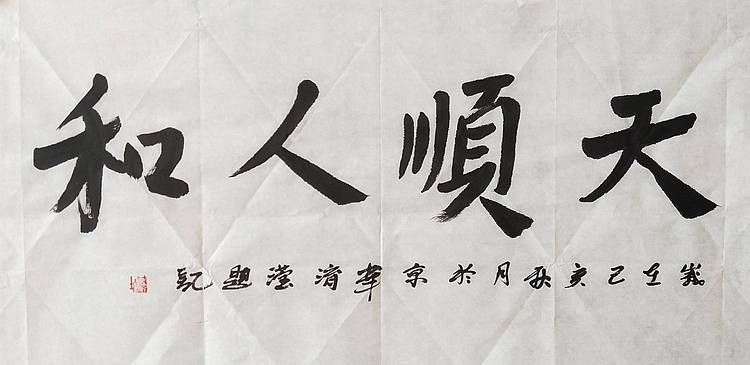 天順人和
歲在己亥秋月於京華清瀅題記